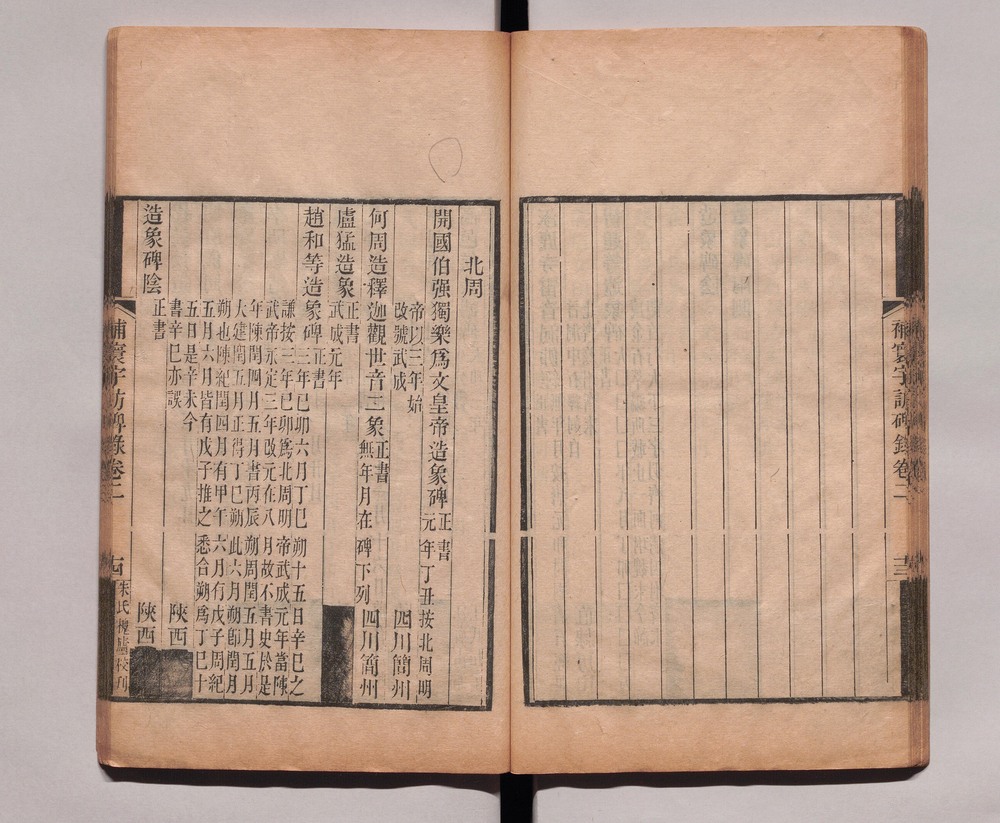 補寰宇訪碑錄卷二
十三
北周
開國伯强獨樂爲文皇帝造象碑
正書
元年丁丑按北周明
帝以三年始
改號武成
四川簡州
何周造釋迦觀世音二象
正書
無年月在碑下列
四川簡州
盧猛造象
正書
武成元年
趙和等造象碑
正書
三年己卯六月丁巳朔十五日辛巳之
謙按三年己卯爲北周明帝武成元年當陳
武帝永定三年改元在八月故不書史於是
年陳閏四月五月書丙辰朔周閏五月五月
大建閏五月正得丁巳朔此六月朔卽閏月
朔也陳紀閏四月有甲午六月有戊子周紀
五月六月皆有戊子推之悉合朔爲丁巳十
五日是辛未今
書辛巳亦誤
陝西
造象碑陰
正書
陝西
補寰宇訪碑錄卷二
十四
朱氏槐廬校刊